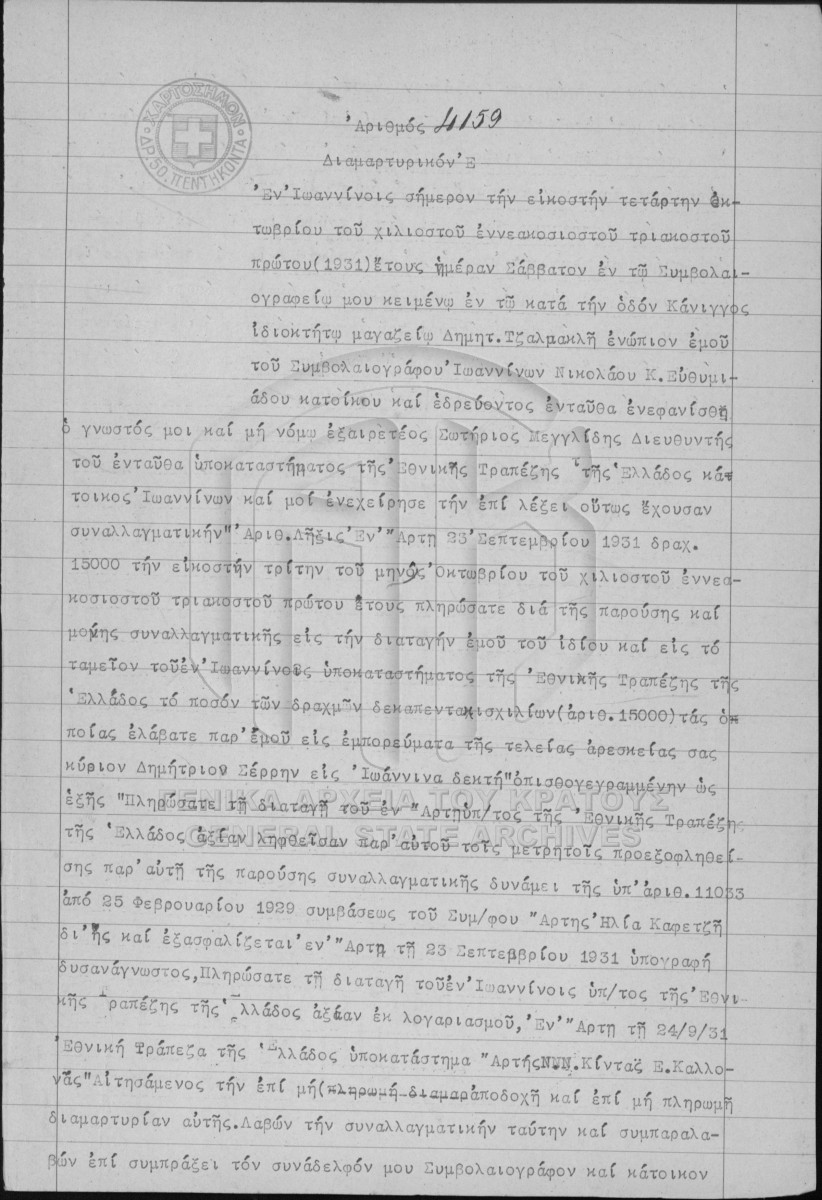 ΧΑΡΤΟΣΗΜΟΝ
ΔΡ. 50. ΠΕΝΤΗΚΟΝΤΑ
Ἀριθμός 4159
Διαμαρτυρικόν Έ
Ἐν Ἰωαννίνοις σήμερον τήν εἰκοστήν τετάρτην Ὀκ-
τωβρίου τοῦ χιλιοστοῦ ἐννεακοσιοστοῦ τριακοστοῦ
πρώτου(1931)ἔτους ἡμέραν Σάββατον ἐν τῷ Συμβολαι-
ογραφείῳ μου κειμένῳ ἐν τῷ κατά τήν ὁδόν Κάνιγγος
ἰδιοκτήτῳ μαγαζείῳ Δημητ.Τζαλμακλῆ ἐνώπιον ἐμοῦ
τοῦ Συμβολαιογράφου Ἰωαννίνων Νικολάου Κ.Εὐθυμι-
άδου κατοίκου καί ἑδρεύοντος ἐνταῦθα ἐνεφανίσθη
ὁ γνωστός μοι καί μή νόμῳ ἐξαιρετέος Σωτήριος Μεγγλίδης Διευθυντής
τοῦ ἐνταῦθα ὑποκαταστήματος τῆς Ἐθνικῆς Τραπέζης τῆς Ἑλλάδος κά-
τοικος Ἰωαννίνων καί μοί ἐνεχείρησε τήν ἐπί λέξει οὕτως ἔχουσαν
συναλλαγματικήν"Ἀριθ.Λῆξις Ἐν Ἄρτῃ 23 Σεπτεμβρίου 1931 δραχ.
15000 τήν εἰκοστήν τρίτην τοῦ μηνός Ὀκτωβρίου τοῦ χιλιοστοῦ ἐννεα-
κοσιοστοῦ τριακοστοῦ πρώτου ἔτους πληρώσατε διά τῆς παρούσης καί
μόνης συναλλαγματικῆς εἰς τήν διαταγήν ἐμοῦ τοῦ ἰδίου καί εἰς τό
ταμεῖον τοῦ ἐν Ἰωαννίνοις ὑποκαταστήματος τῆς Ἐθνικῆς Τραπέζης τῆς
Ἑλλάδος τό ποσόν τῶν δραχμῶν δεκαπεντακισχιλίων(ἀριθ.15000)τάς ὁ-
ποίας ἐλάβατε παρ'ἐμοῦ εἰς ἐμπορεύματα τῆς τελείας ἀρεσκείας σας
κύριον Δημήτριον Σέρρην εἰς Ἰωάννινα δεκτή"ὀπισθογεγραμμένην ὡς
ἑξῆς "Πληρώσατε τῇ διαταγῇ τοῦ ἐν Ἄρτῃ ὑπ/τος τῆς Ἐθνικῆς Τραπέζης
τῆς Ἑλλάδος ἀξίαν ληφθεῖσαν παρ'αὐτοῦ τοῖς μετρητοῖς προεξοφληθεί-
σης παρ'αὐτῇ τῆς παρούσης συναλλαγματικῆς δυνάμει τῆς ὑπ'ἀριθ.11033
ἀπό 25 Φεβρουαρίου 1929 συμβάσεως τοῦ Συμ/φου Ἄρτης Ἠλία Καφετζῆ
δι'ἧς καί ἐξασφαλίζεται ἐν Ἄρτῃ τῇ 23 Σεπτεμβρίου 1931 ὑπογραφή
δυσανάγνωστος,Πληρώσατε τῇ διαταγῇ τοῦ ἐν Ἰωαννίνοις ὑπ/τος τῆς Ἐθνι-
κῆς Τραπέζης τῆς Ἑλλάδος ἀξίαν ἐκ λογαριασμοῦ, Ἐν Ἄρτῃ τῇ 24/9/31
Ἐθνική Τράπεζα τῆς Ἑλλάδος ὑποκατάστημα Ἄρτης ΝΝΝ.Κίνταξ Ε.Καλλο-
νάς"Αἰτησάμενος τήν ἐπί μή(πληρωμή διαμαρἀποδοχῇ καί ἐπί μή πληρωμῇ
διαμαρτυρίαν αὐτῆς.Λαβών τήν συναλλαγματικήν ταύτην καί συμπαραλα-
βών ἐπί συμπράξει τόν συνάδελφόν μου Συμβολαιογράφον καί κάτοικον
ΓΕΝΙΚΑ ΑΡΧΕΙΑ ΤΟΥ ΚΡΑΤΟΥΣ
GENERAL STATE ARCHIVES